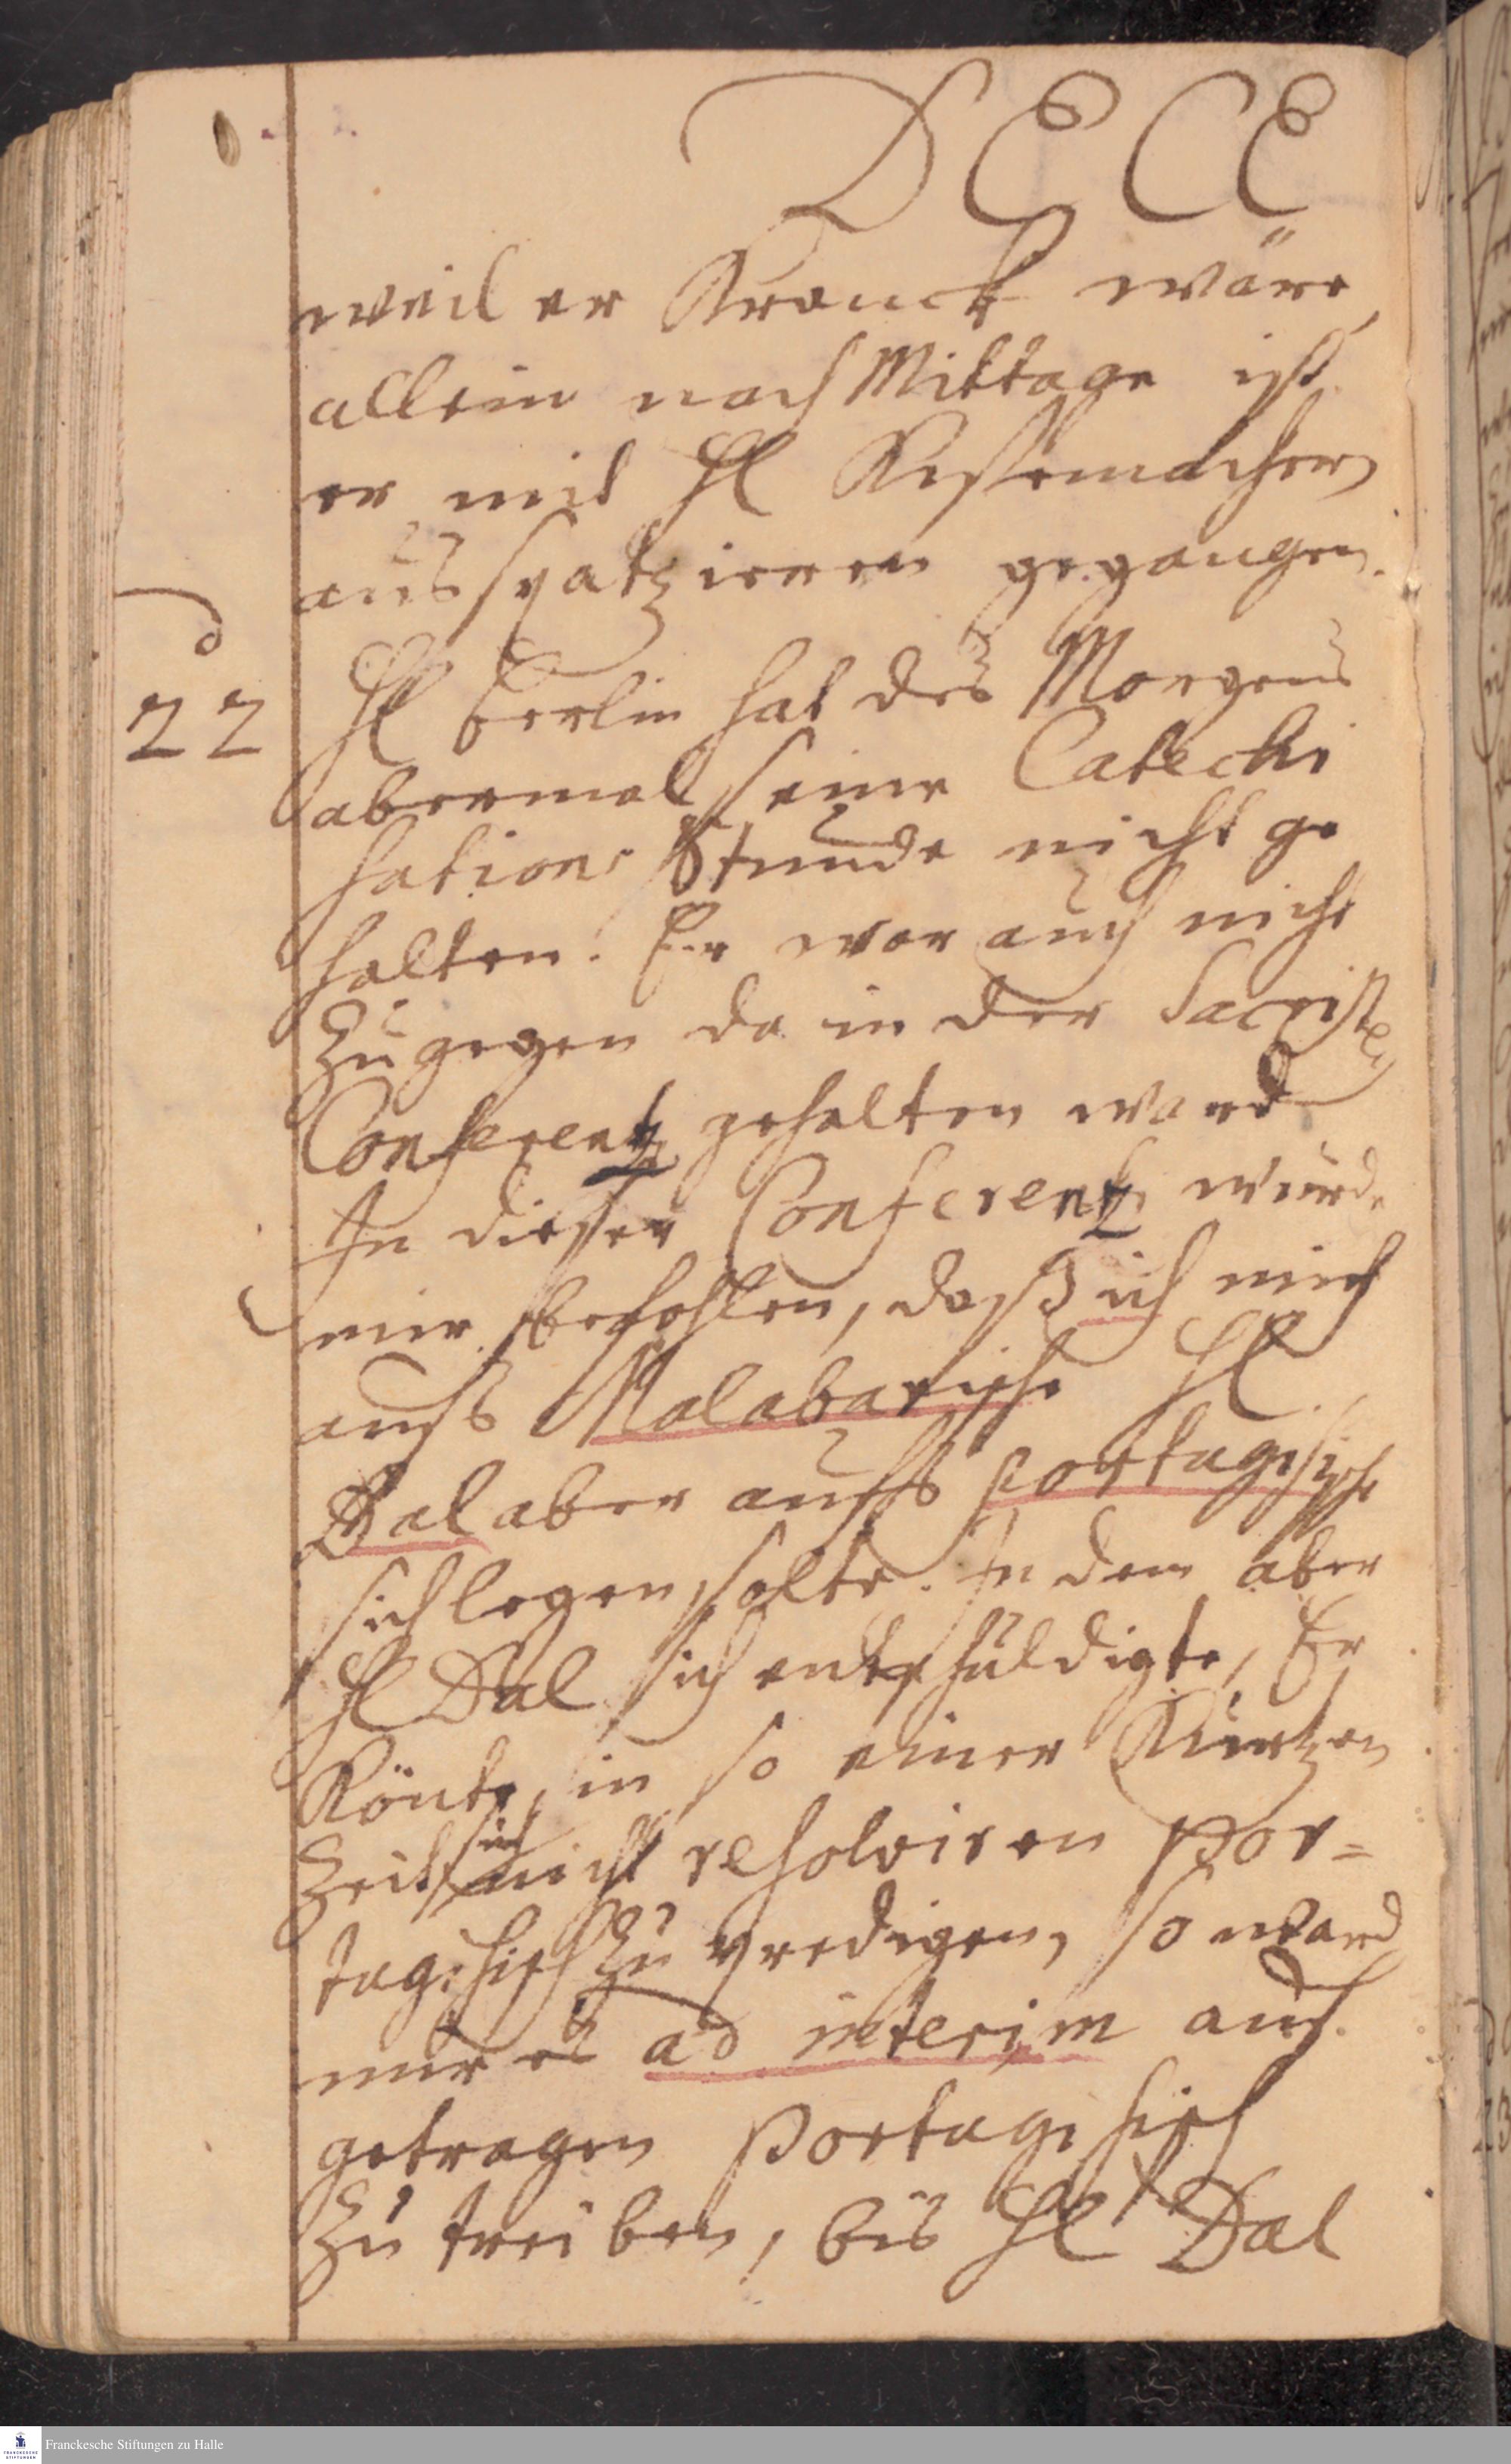 DECE
weil er Kranck wäre,
allein nach Mittage ist
er mit H Kistemachern
aus spatzieren gegangen.
22
H berlin hat des Morgens
abermal seine Catechi
sations Stunde nicht ge
halten. Er war auch nicht
zu gegen da in der Sacristey
Conferentz gehalten ward
In dieser Conferentz wurde
mir befohlen, daß ich mich
aufs Malabarische H
Dal aber aufs portugisische
sich legen solte. In dem aber
H Dal sich entschuldigte, Er
Könte in so einer Kurtzen
Zeit sich nicht resolviren por=
tugisisch zu predigen, so ward
mir es ad interim auf
getragen portugisisch
zu treiben, bis H Dal
Franckesche Stiftungen zu Halle
FRANCKESCHE
STIFTUNGEN